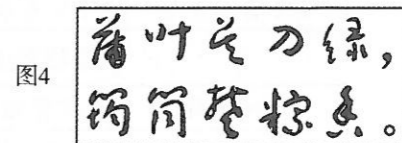 图4
蒲叶吴刀绿，
筠筒楚粽香。